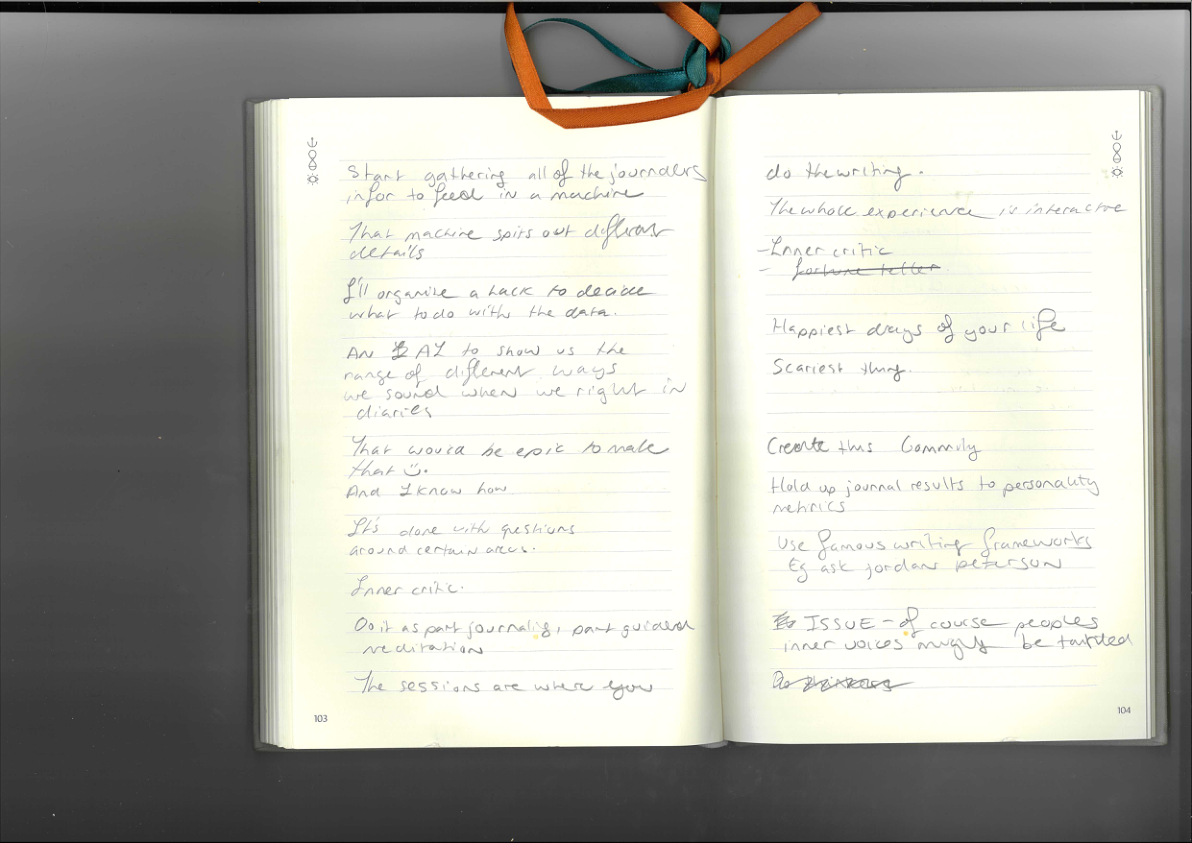 Start gathering all of the journalers
infor to feed in a machine
That machine spits out different
details
I'll organise a hack to decide
what to do with the data.
An AI to show us the
range of different ways
we sound when we right in
diaries
That would be epic to make
that :).
And I know how
It's done with questions
around certain areas.
Inner critic.
Do it as part journaling, part guided
meditation
The sessions are where you
103
do the writing.
The whole experience is interactive
- Inner critic
- fortune teller
Happiest days of your life
Scariest thing.
Create this
Hold up journal results to personality
metrics
Use famous writing frameworks
Eg ask jordan peterson
ISSUE - of course peoples
inner voices might be
104